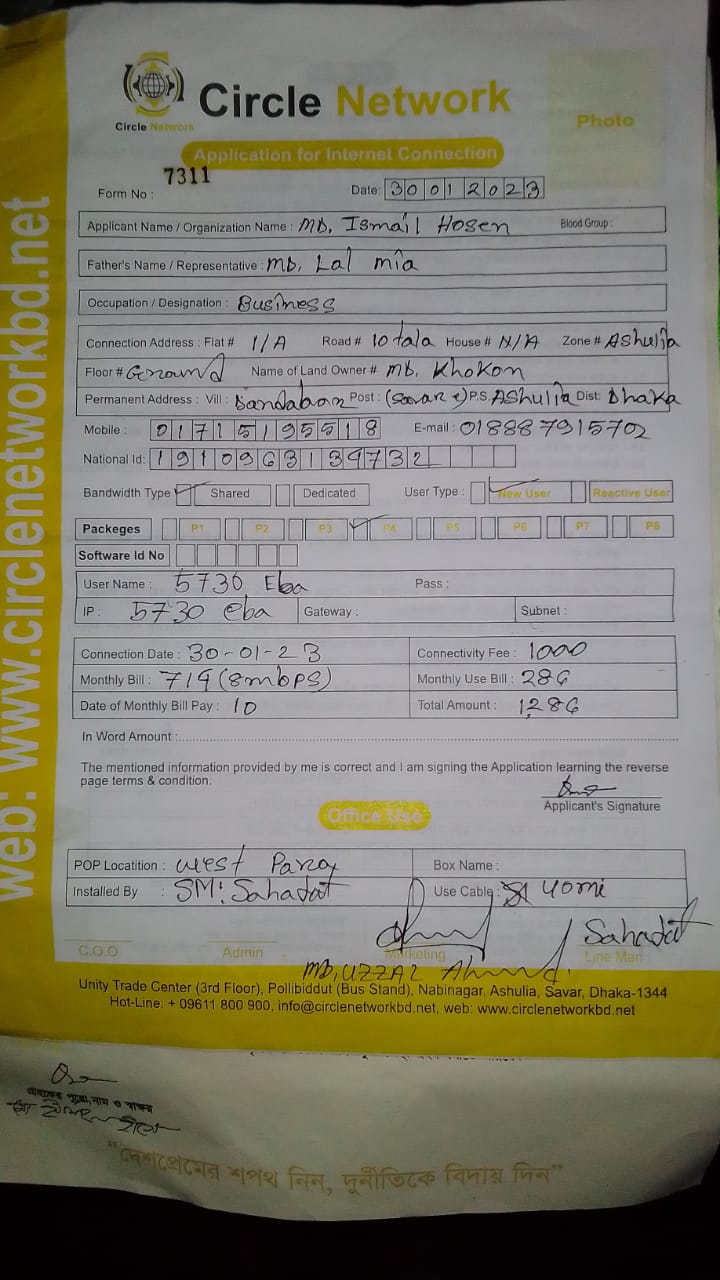 Circle Network
Circle Network
Photo
Application for Internet Connection
Form No : 7311
Date: 30 01 2023
Applicant Name / Organization Name : MD, Ismail Hosen Blood Group :
Father's Name / Representative : MD, Lal mia
Occupation / Designation : Business
Connection Address : Flat # 1/A Road # 10 tala House # N/A Zone # Ashulia
Floor # Ground Name of Land Owner # MD, Khokon
Permanent Address : Vill : Post : P.S, AShulia Dist: Dhaka
Mobile : 01715195518 E-mail : 01888 7915702
National Id: 19109631
Bandwidth Type Shared Dedicated User Type : New User Reactive User
Packeges P1 P2 P3 P4 P5 P6 P7 P8
Software Id No
User Name : 5730 Eba Pass :
IP : 5730 eba Gateway : Subnet :
Connection Date : 30-01-23 Connectivity Fee : 1000
Monthly Bill : 714 (8mbps) Monthly Use Bill : 286
Date of Monthly Bill Pay : 10 Total Amount : 1286
In Word Amount :
The mentioned information provided by me is correct and I am signing the Application learning the reverse
page terms & condition.
Applicant's Signature
Office Use
POP Locatition : west Para Box Name :
Installed By : SM: Sahadat Use Cable :
Sahadat
C.O.O Admin Marketing Line Man
MD, UZZAL Ahmed.
Unity Trade Center (3rd Floor), Pollibiddut (Bus Stand), Nabinagar, Ashulia, Savar, Dhaka-1344
Hot-Line: + 09611 800 900, info@circlenetworkbd.net, web: www.circlenetworkbd.net
web: www.circlenetworkbd.net
"দেশপ্রেমের শপথ নিন, দুর্নীতিকে বিদায় দিন"